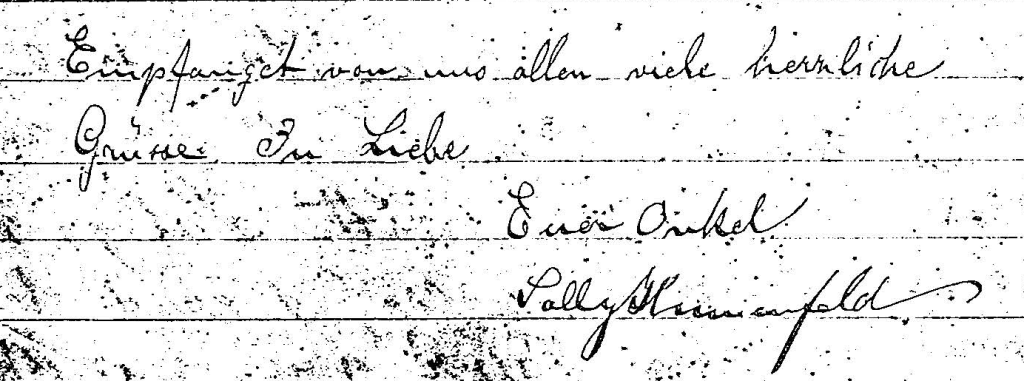 Empfanget von uns allen viele herrliche
Grüsse. In Liebe
Euer Onkel
Sally